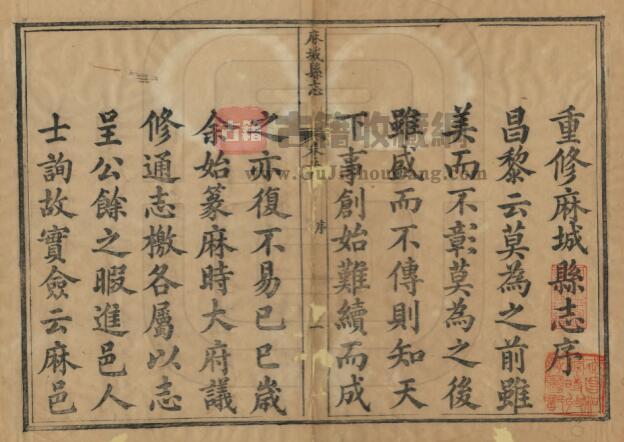 重修麻城縣志序
昌黎云莫為之前雖
美而不彰莫為之後
雖盛而不傳則知天
下事創始難續而成
之亦復不易已巳歲
余始篆麻時大府議
修通志檄各屬以志
呈公餘之暇進邑人
士詢故實僉云麻邑
麻城縣志
序
一
古籍
古籍收藏網
www.GuJiShouCang.com